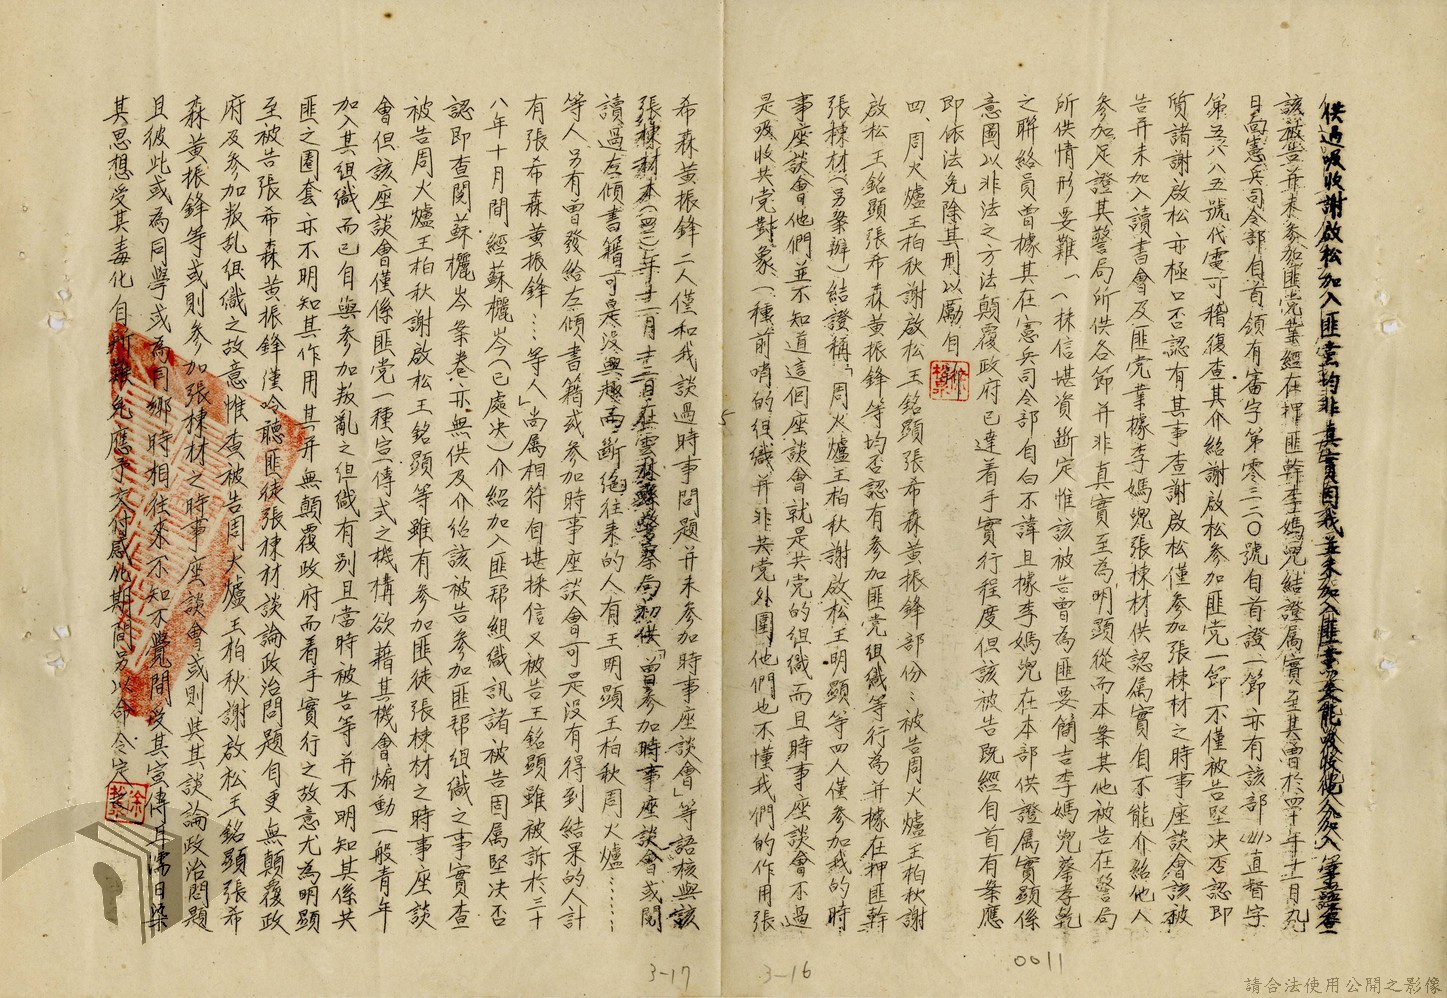 供過吸收謝啟松加入匪黨均非真實因我並未加入匪黨
該被告并未參加匪党業經在押匪幹李媽兜結證属實至其曾於四十年十一月九
日向憲兵司令部自首領有審字第零三三〇號自首證一節亦有該部(41)直智字
第五八八五號代電可稽復查其介紹謝啟松參加匪党一節不僅被告堅决否認即
質諸謝啟松亦極口否認有其事查謝啟松僅參加張棟材之時事座談會該被
告并未加入讀書會及匪党業據李媽兜張棟材供認属實自不能介紹他人
參加足證其警局所供各節并非真實至為明顯從而本案其他被告在警局
所供情形要難一一採信堪資斷定惟該被告曾為匪要簡吉李媽兜蔡孝乾
之聯絡員曾據其在憲兵司令部自白不諱且據李媽兜在本部供證属實顯係
意圖以非法之方法顛覆政府已達着手實行程度但該被告既經自首有案應
即依法免除其刑以勵自
四、周火爐王柏秋謝啟松王銘顕張希森黃振鋒部份：被告周火爐王柏秋謝
啟松王銘顕張希森黃振鋒等均否認有參加匪党組織等行為并據在押匪幹
張棟材(另案辦)結證稱「周火爐王柏秋謝啟松王明顕等四人僅參加我的時
事座談會他們並不知道這個座談會就是共党的組織而且時事座談會不過
是吸收共党對象一種前哨的組織并非共党外圍他們也不懂我們的作用張
希森黃振鋒二人僅和我談過時事問題并未參加時事座談會」等語核與該
張棟材在雲林縣警察局初供「曾參加時事座談會或閱
讀過左傾書籍可是没興趣而斷絕往來的人有王明顕王柏秋周火爐……
等人另有曾發給左傾書籍或參加時事座談會可是没有得到結果的人計
有張希森黃振鋒…等人」尚属相符自堪採信又被告王銘顕雖被訴於三十
八年十月間經蘇欐岑(已處决)介紹加入匪帮組織訊諸被告固属堅决否
認即查閱蘇欐岑案卷亦無供及介紹該被告參加匪帮組織之事實查
被告周火爐王柏秋謝啟松王銘顕等雖有參加匪徒張棟材之時事座談
會但該座談會僅係匪党一種宣傳式之機構欲藉其機會煽動一般青年
加入其組織而已自與參加叛亂之组織有别且當時被告等并不明知其係共
匪之圈套亦不明知其作用其并無顛覆政府而着手實行之故意尤為明顕
至被告張希森黃振鋒僅聆聽匪徒張棟材談論政治問題自更無顛覆政
府及參加叛乱组織之故意惟查被告周火爐王柏秋謝啟松王銘顕張希
森黃振鋒等或則參加張棟材之時事座談會或則與其談論政治問題
且彼此或為同學或為同鄉時相往來不知不覺間受其宣傳耳濡目染
其思想受其毒化自所難免應予交付感化期間另以命令定
3-17
3-16
0011
請合法使用公開之影像